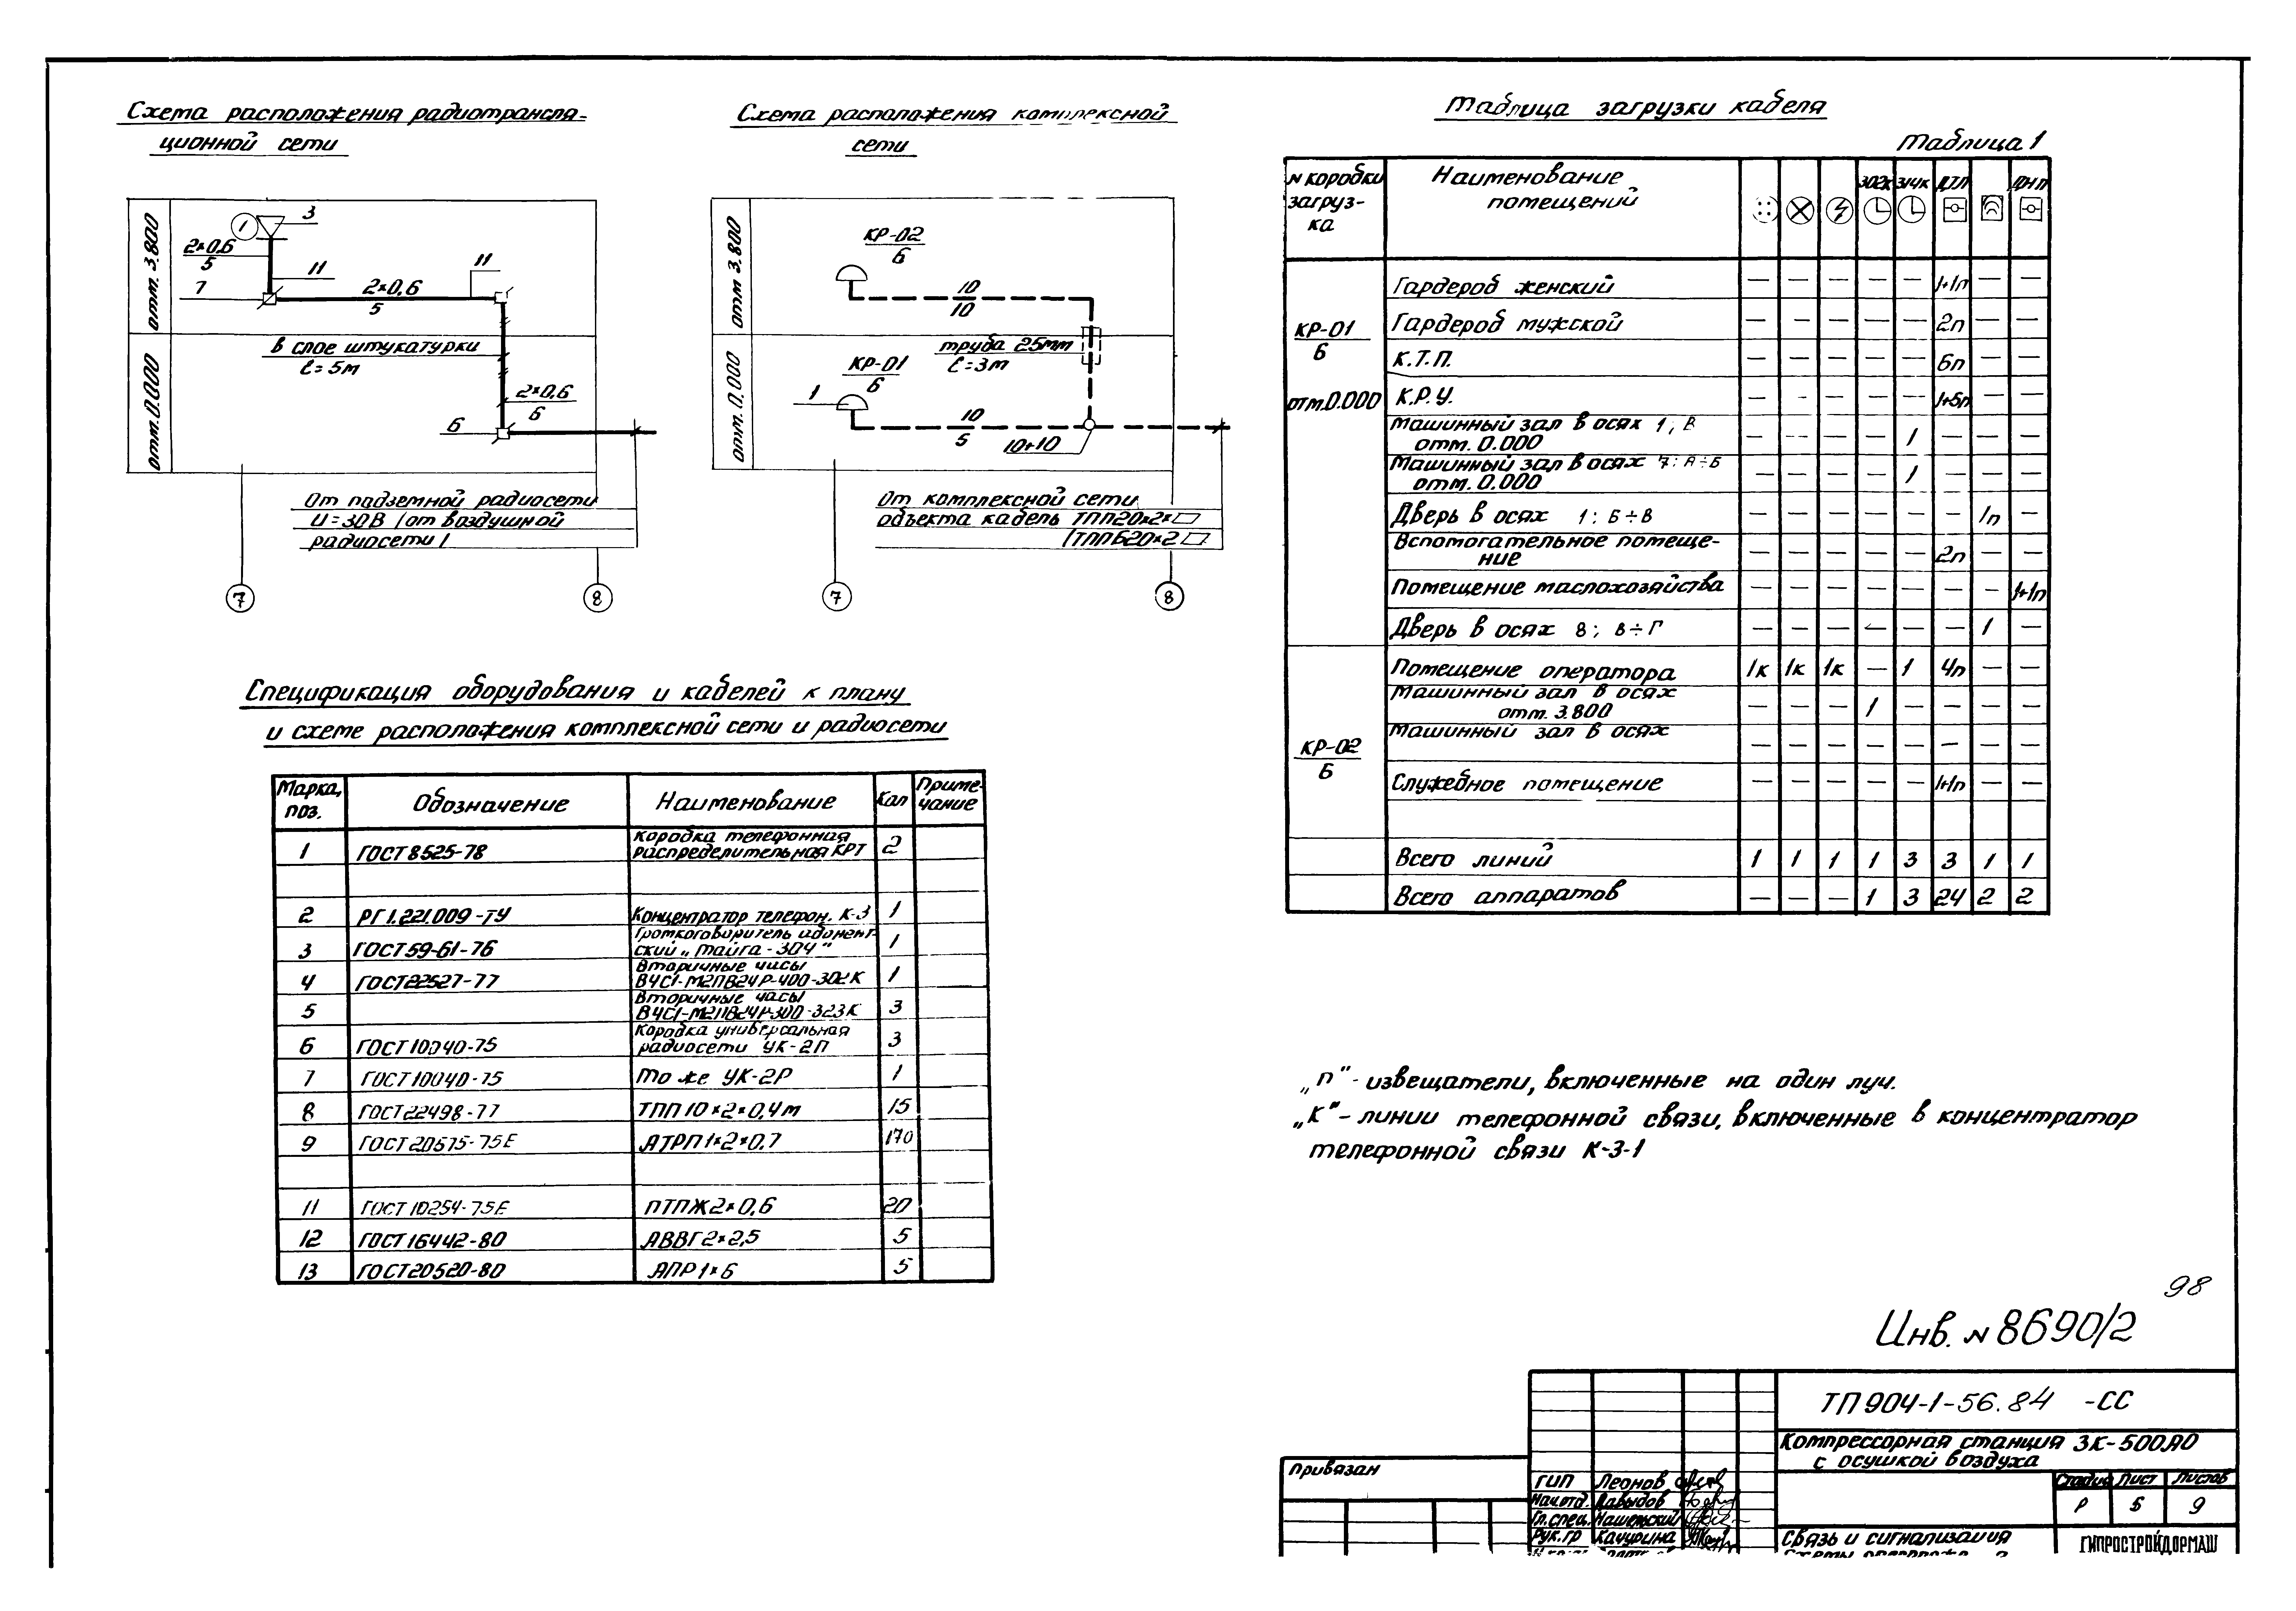 Схема расположения радиотрансля-
ционной сети
отм. 3.800
отм. 0.000
1
3
2×0.6
5
11
7
2×0,6
5
11
в слое штукатурки
ℓ=5м
2×0,6
6
6
От подземной радиосети
U=30В /от воздушной
радиосети/
7
8
Схема расположения комплексной
сети
отм 3.800
отм. 0,000
КР-02
6
10
10
КР-01
6
труба 25мм
ℓ=3м
1
10
5
10+10
От комплексной сети
объекта кабель ТПП20×2×▱
/ТППБ20×2▱
7
8
Таблица загрузки кабеля
Таблица 1
N коробки загруз-ка | Наименование помещений | 302к | 314к | ДТЛ | ДНП
КР-01
6
отм.0.000
Гардероб женский — — — — — 1+1п — —
Гардероб мужской — — — — — 2п — —
К.Т.П. — — — — — 6п — —
К.Р.У. — — — — — 1+5п — —
Машинный зал в осях 1; В
отм. 0.000 — — — — 1 — — —
Машинный зал в осях 7: А÷Б
отм. 0.000 — — — — 1 — — —
Дверь в осях 1: Б÷В — — — — — — 1п —
Вспомогательное помеще-
ние — — — — — 2п — —
Помещение маслохозяйства — — — — — — — 1+1п
Дверь в осях 8; В÷Г — — — — — — 1 —
КР-02
6
Помещение оператора 1к 1к 1к — 1 4п — —
Машинный зал в осях
отм. 3.800 — — — 1 — — — —
Машинный зал в осях — — — — — — — —
Служебное помещение — — — — — 1+1п — —
Всего линий 1 1 1 1 3 3 1 1
Всего аппаратов — — — 1 3 24 2 2
Спецификация оборудования и кабелей к плану
и схеме расположения комплексной сети и радиосети
Марка, поз. | Обозначение | Наименование | Кол | Приме-чание
1 ГОСТ 8525-78 Коробка телефонная
распределительная КРТ 2
2 РГ1.221.009-ТУ Концентратор телефон. К-3 1
3 ГОСТ 59-61-76 Громкоговоритель абонент-
ский „Тайга-304" 1
4 ГОСТ 22527-77 Вторичные часы
ВЧС1-М2ПВ24Р-400-302К 1
5 Вторичные часы
ВЧС1-М2ПВ24Р-300-323К 3
6 ГОСТ 10040-75 Коробка универсальная
радиосети УК-2П 3
7 ГОСТ 10040-75 То же УК-2Р 1
8 ГОСТ 22498-77 ТПП 10×2×0,4 м 15
9 ГОСТ 20575-75Е АТРП 1×2×0.7 170
11 ГОСТ 10254-75Е ПТПЖ 2×0,6 20
12 ГОСТ 16442-80 АВВГ 2×2,5 5
13 ГОСТ 20520-80 АПР 1×6 5
„п" - извещатели, включенные на один луч.
„К" - линии телефонной связи, включенные в концентратор
телефонной связи К-3-1
98
Инв. N 8690/2
ТП 904-1-56.84 -СС
Компрессорная станция 3К-500АО
с осушкой воздуха
Привязан
ГИП Леонов
Нач.отд. Давыдов
Гл.спец.
Рук.гр Качурина
Стадия Лист Листов
Р 6 9
Связь и сигнализация
ГИПРОСТРОЙДОРМАШ